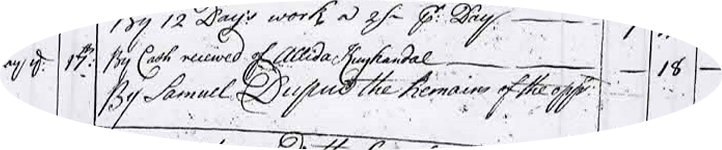 By 12 Days work a 2/- Pr. Day
17th: By Cash received of Allida Kuykandal — 18 —
By Samuel Dupue the Remains of the